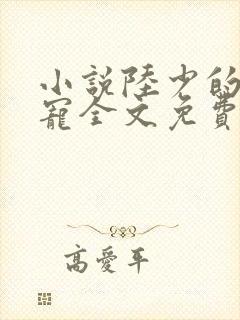 小説陸少的
寵全文免費
高愛平